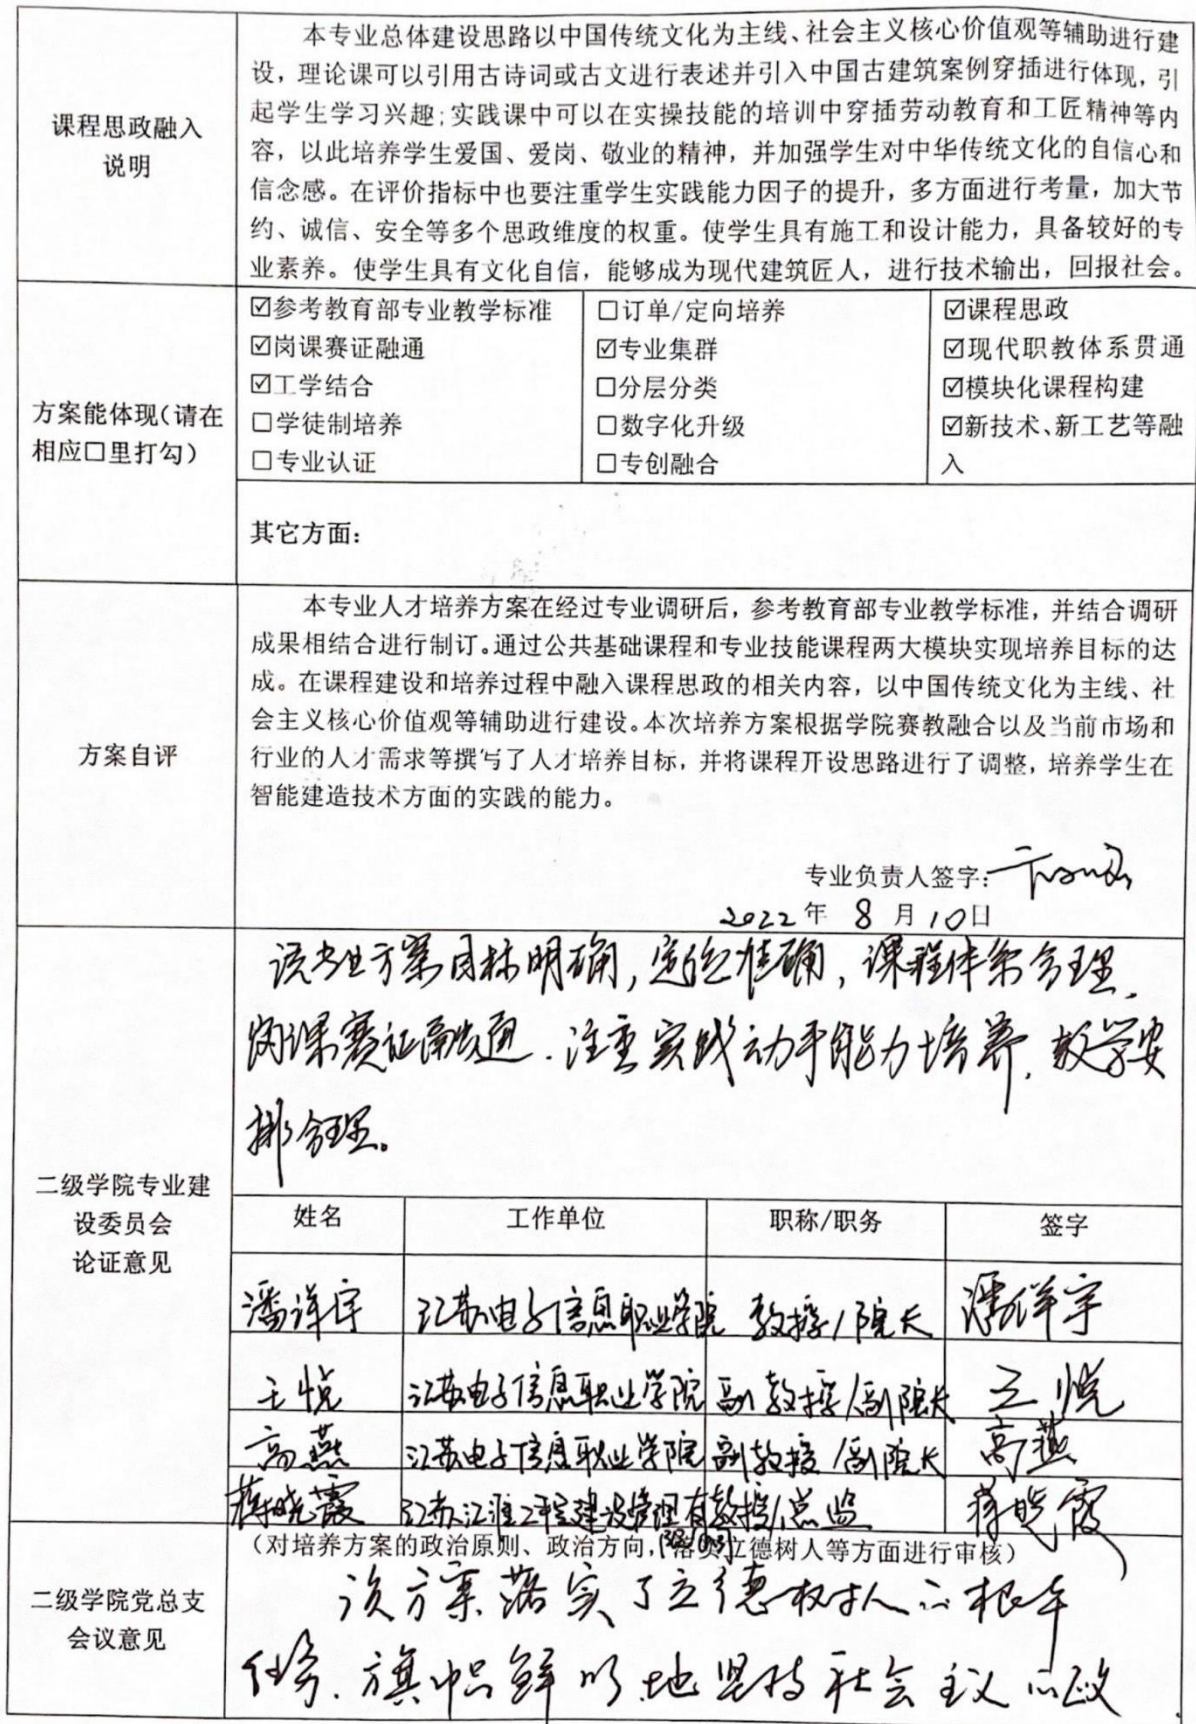 课程思政融入
说明
本专业总体建设思路以中国传统文化为主线、社会主义核心价值观等辅助进行建
设，理论课可以引用古诗词或古文进行表述并引入中国古建筑案例穿插进行体现，引
起学生学习兴趣；实践课中可以在实操技能的培训中穿插劳动教育和工匠精神等内
容，以此培养学生爱国、爱岗、敬业的精神，并加强学生对中华传统文化的自信心和
信念感。在评价指标中也要注重学生实践能力因子的提升，多方面进行考量，加大节
约、诚信、安全等多个思政维度的权重。使学生具有施工和设计能力，具备较好的专
业素养。使学生具有文化自信，能够成为现代建筑匠人，进行技术输出，回报社会。
方案能体现（请在
相应□里打勾）
☑参考教育部专业教学标准
☑岗课赛证融通
☑工学结合
□学徒制培养
□专业认证
□订单/定向培养
☑专业集群
□分层分类
□数字化升级
□专创融合
☑课程思政
☑现代职教体系贯通
☑模块化课程构建
☑新技术、新工艺等融
入
其它方面：
方案自评
本专业人才培养方案在经过专业调研后，参考教育部专业教学标准，并结合调研
成果相结合进行制订。通过公共基础课程和专业技能课程两大模块实现培养目标的达
成。在课程建设和培养过程中融入课程思政的相关内容，以中国传统文化为主线、社
会主义核心价值观等辅助进行建设。本次培养方案根据学院赛教融合以及当前市场和
行业的人才需求等撰写了人才培养目标，并将课程开设思路进行了调整，培养学生在
智能建造技术方面的实践的能力。
专业负责人签字：
2022年 8 月 10日
二级学院专业建
设委员会
论证意见
该专业方案目标明确，定位准确，课程体系合理，
岗课赛证融通．注重实践动手能力培养，教学安
排合理。
姓名 工作单位 职称/职务 签字
潘祥宇 江苏电子信息职业学院 教授/院长 潘祥宇
王悦 江苏电子信息职业学院 副教授/副院长 王悦
高燕 江苏电子信息职业学院 副教授/副院长 高燕
蒋晓霞 江苏江淮工程建设管理有限公司 教授/总监 蒋晓霞
二级学院党总支
会议意见
（对培养方案的政治原则、政治方向，落实立德树人等方面进行审核）
该方案落实了立德树人的根本
任务．旗帜鲜明地坚持社会主义的政